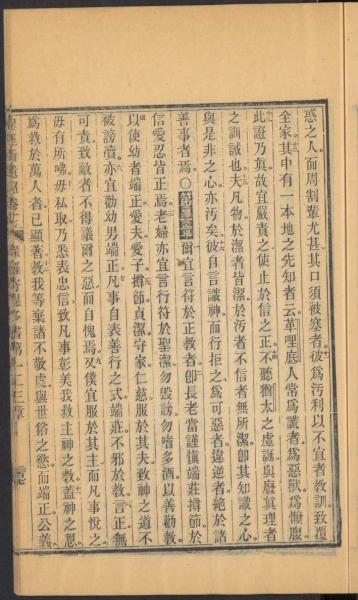 惑之人而周割輩尤甚其口須被塞者彼爲汚利以不宜者教訓致覆
全家其中有一本地之先知者云革哩底人常爲謊者爲惡獸爲懶腹
此證乃眞故宜嚴責之使止於信之正不聽猶太之虛誕與廢眞理者
之訓誡也夫凡物於潔者皆潔於汚者不信者無所潔卽其知識之心
與是非之心亦汚矣彼自言識神而行拒之爲可惡者違逆者絶於諸
善事者焉〇爾宜言符於正教者卽長老當謹愼端莊撙節於
信愛忍皆正焉老婦亦宜言行符於聖潔勿毀謗勿嗜多酒以善勸教
以使幼者端正愛夫愛子撙節貞潔守家仁慈服於其夫致神之道不
被謗瀆亦宜勸幼男端正凡事自表善行之式端莊不邪於教言正無
可責致敵者不得議爾之惡而自愧焉又僕宜服於其主而凡事悅之
毋有所咈毋私取乃悉表忠信致凡事彰美我救主神之教蓋神之恩
爲救於萬人者已顯著教我等棄諸不敬虔與世俗之慾而端正公義